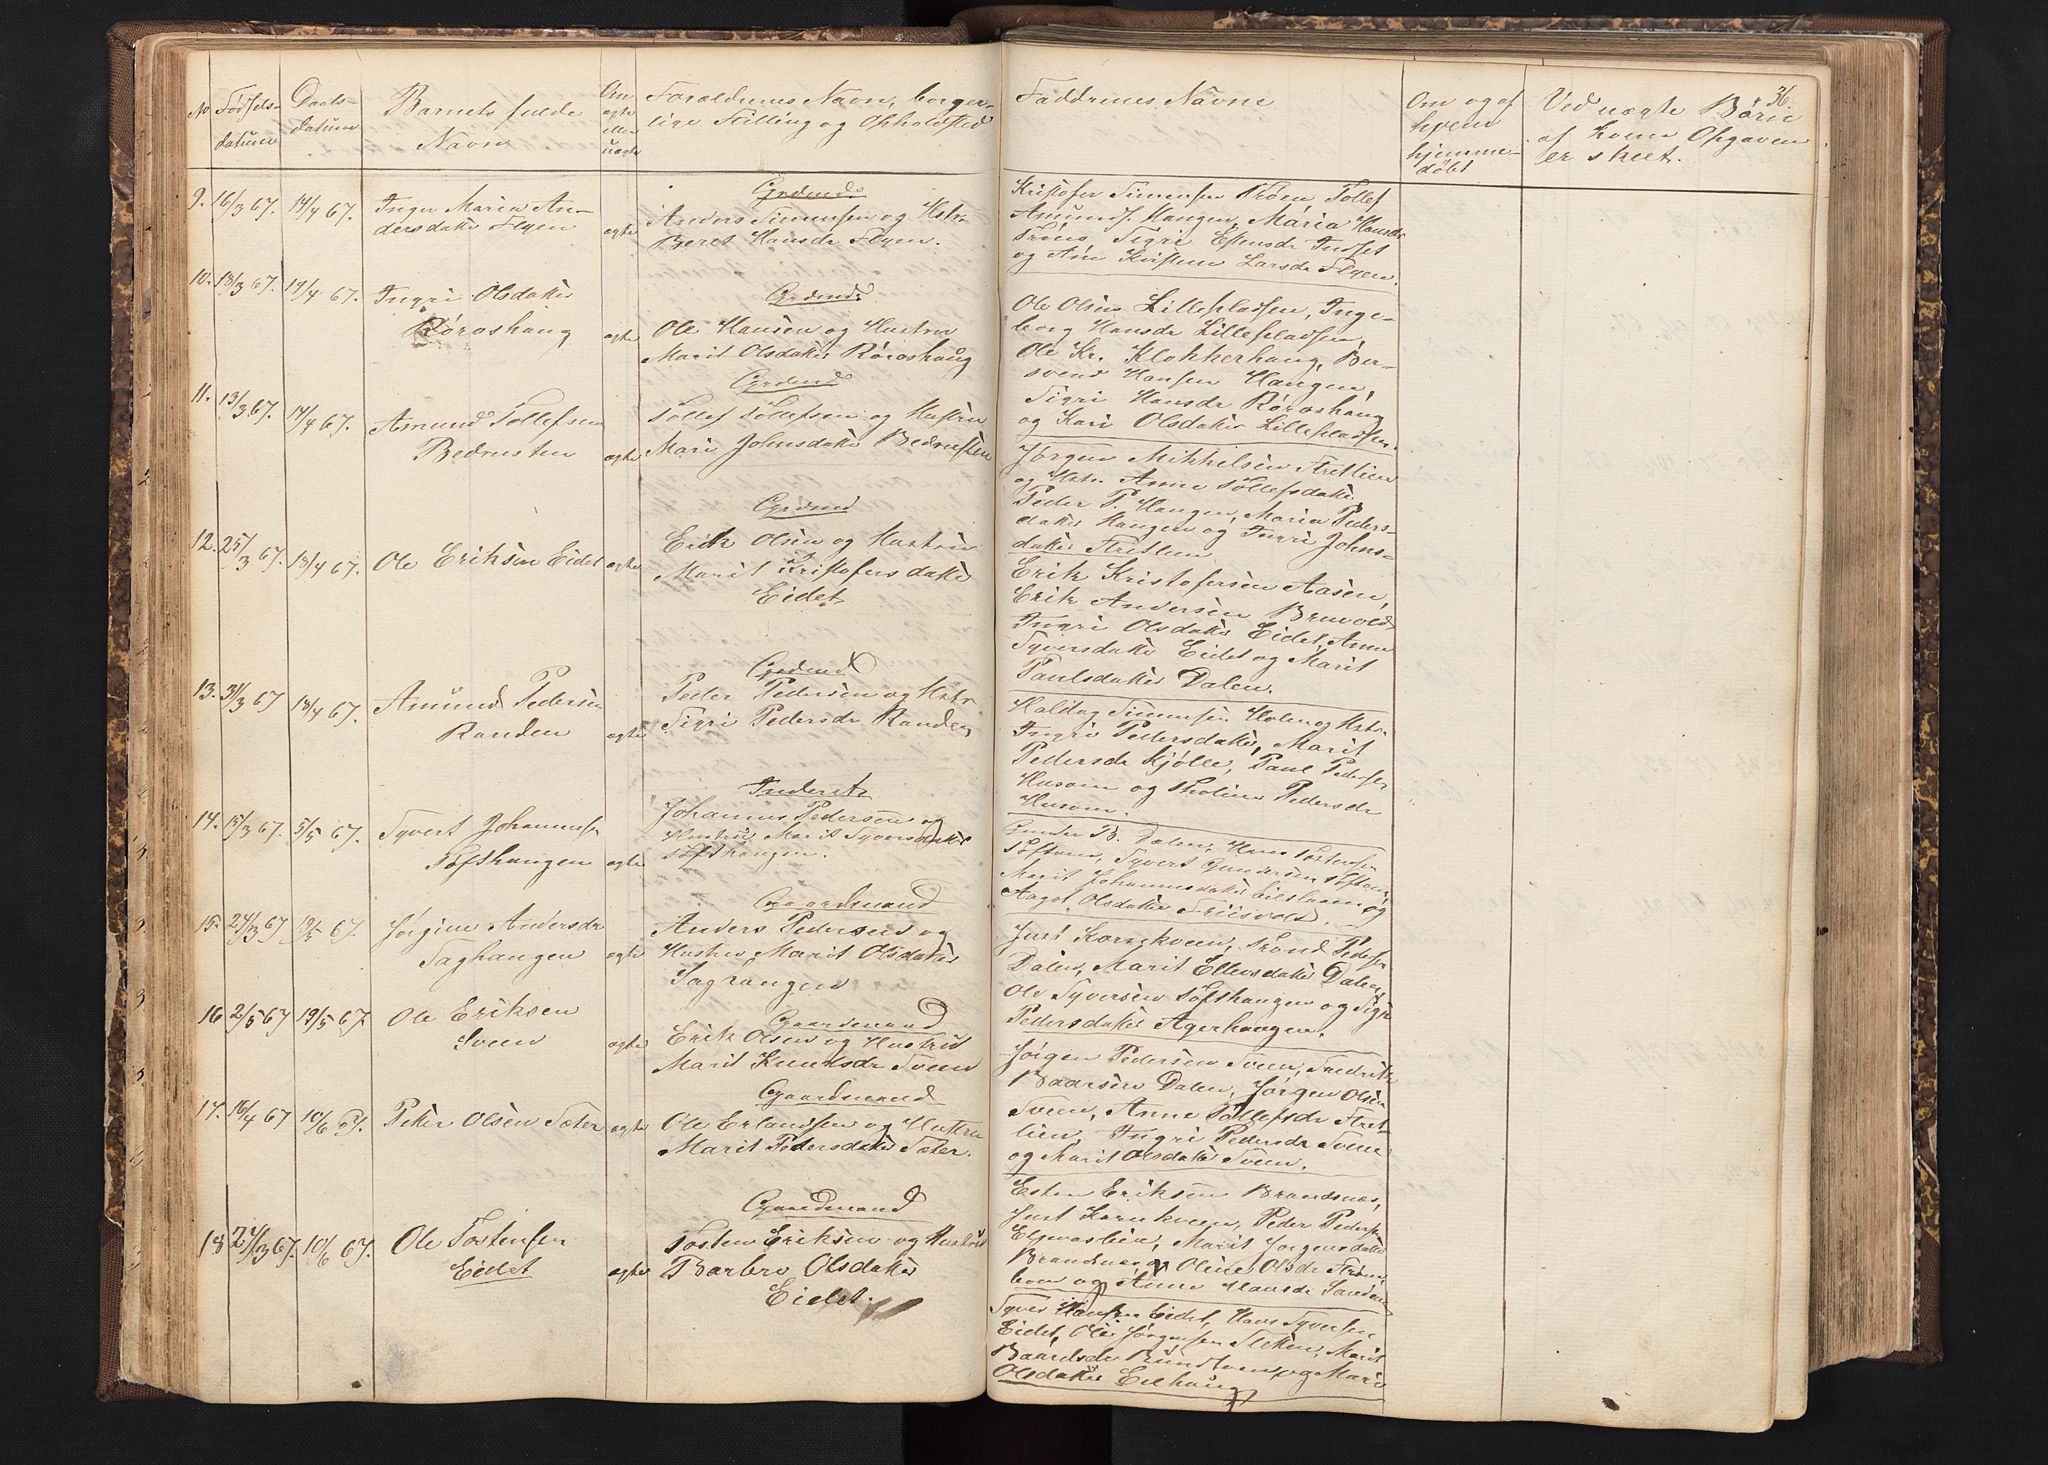 36.
No
Fødsels-
datum
Daabs-
datum
Barnets fulde
Navn
Om
ægte
eller
uægte
Forældrenes Navn, borger-
lige Stilling og Opholdsted
Faddrenes Navne
Om og af
hvem
hjemme-
døbt
Ved uægte Børn
af hvem Opgaven
er skeet.
9. 16/3 67. 14/4 67. Inger Maria An-
dersdatter Flyen
ægte
Grdmd
Anders Simensen og Hstr.
Beret Hansdr Flyen.
Kristofer Simensen Trøen Tollef
Amunds. Haugen, Maria Hansdr
Trøen Sigri Estensdr Indset
og Kirsten Larsdr Flyen.
10. 13/3 67. 14/4 67. Ingri Olsdatter
Røroshaug
ægte
Grdmd
Ole Hansen og Hustru
Marit Olsdatter Røroshaug
Ole Olsen Lilleplassen, Inge-
borg Hansdr Lilleplassen,
Ole Kr. Klokkerhaug, Ber-
svend Hansen Haugen,
Sigri Hansdr Røroshaug
og Kari Olsdatter Lilleplassen.
11. 13/3 67. 14/4 67. Amund Tollefsen
Bedrusten
ægte
Grdmd
Tollef Tollefsen og Hustru
Mari Johnsdatter Bedrusten
Jørgen Mikkelsen Stretlien
og Hstr. Anne Tollefsdatter,
Peder P. Haugen, Maria Peders-
datter Haugen og Ingri Johns-
datter Stretlien
12. 25/3 67. 18/4 67. Ole Eriksen Eidet ægte
Grdmd
Erik Olsen og Hustru
Marit Kristofersdatter
Eidet
Erik Kristofersen Aasen,
Erik Andersen Bruvold
Ingri Olsdatter Eidet, Anne
Syversdatter Eidet og Marit
Paulsdatter Dalen.
13. 31/3 67 18/4 67. Amund Pedersen
Randen
ægte
Grdmd
Peder Pedersen og Hstr.
Sigri Pedersdr Randen
Haldag Simensen Holen og Hstr.
Ingri Pedersdatter, Marit
Pedersdr Kjølle, Paul Pedersen
Husom og Tholine Pedersdr
Husom.
14. 15/3 67. 5/5 67. Syvert Johannesen
Toftshaugen
ægte
Inderst
Johannes Pedersen og
Hustru Marit Syversdatter
Toftshaugen.
Gunder B. Dalen, Hans Tostensen
Toften, Syvert Gundersen Toften,
Marit Johannesdatter og
Aagot Olsdatter Friisvold.
15. 24/3 67 19/5 67. Jørgine Andersdr
Saghaugen
ægte
Gaardmand
Anders Pedersen og
Hustru Marit Olsdatter
Saghaugen
Just Kornkveen, Trond Pedersen
Dalen, Marit Ellevsdatter Dalen,
Ole Syversen Toftshaugen og Sigri
Pedersdatter Agerhaugen.
16 2/5 67 19/5 67. Ole Eriksen
Sveen
ægte
Gaardmand
Erik Olsen og Hustru
Marit Knutsdr Sveen
Jørgen Pedersen Sveen, Fredrik
Baarsen Dalen, Jørgen Olsen
Sveen, Anne Tollefsdr Stret-
lien, Ingri Pedersdr Sveen
og Marit Olsdatter Sveen.
17. 16/4 67 10/6 67. Peter Olsen Sæter ægte
Gaardmand
Ole Erlandsen og Hustru
Marit Pedersdatter Sæter.
Esten Eriksen Brandsnes,
Just Kornkveen, Peder Pedersen
Elgvaslien, Marit Jørgensdatter
Brandsnes, Oline Olsdr Strøm-
boen og Anne Hansdr Sanden
18 24/3 67. 10/6 67. Ole Tostensen
Eidet
ægte
Gaardmand
Tosten Eriksen og Hustru
Barbro Olsdatter
Eidet.
Syver Hansen Eidet, Hans Syversen
Eidet, Ole Jørgensen Steien, Marit
Baardsdr Rundtom og Mari
Olsdatter Eidhaug